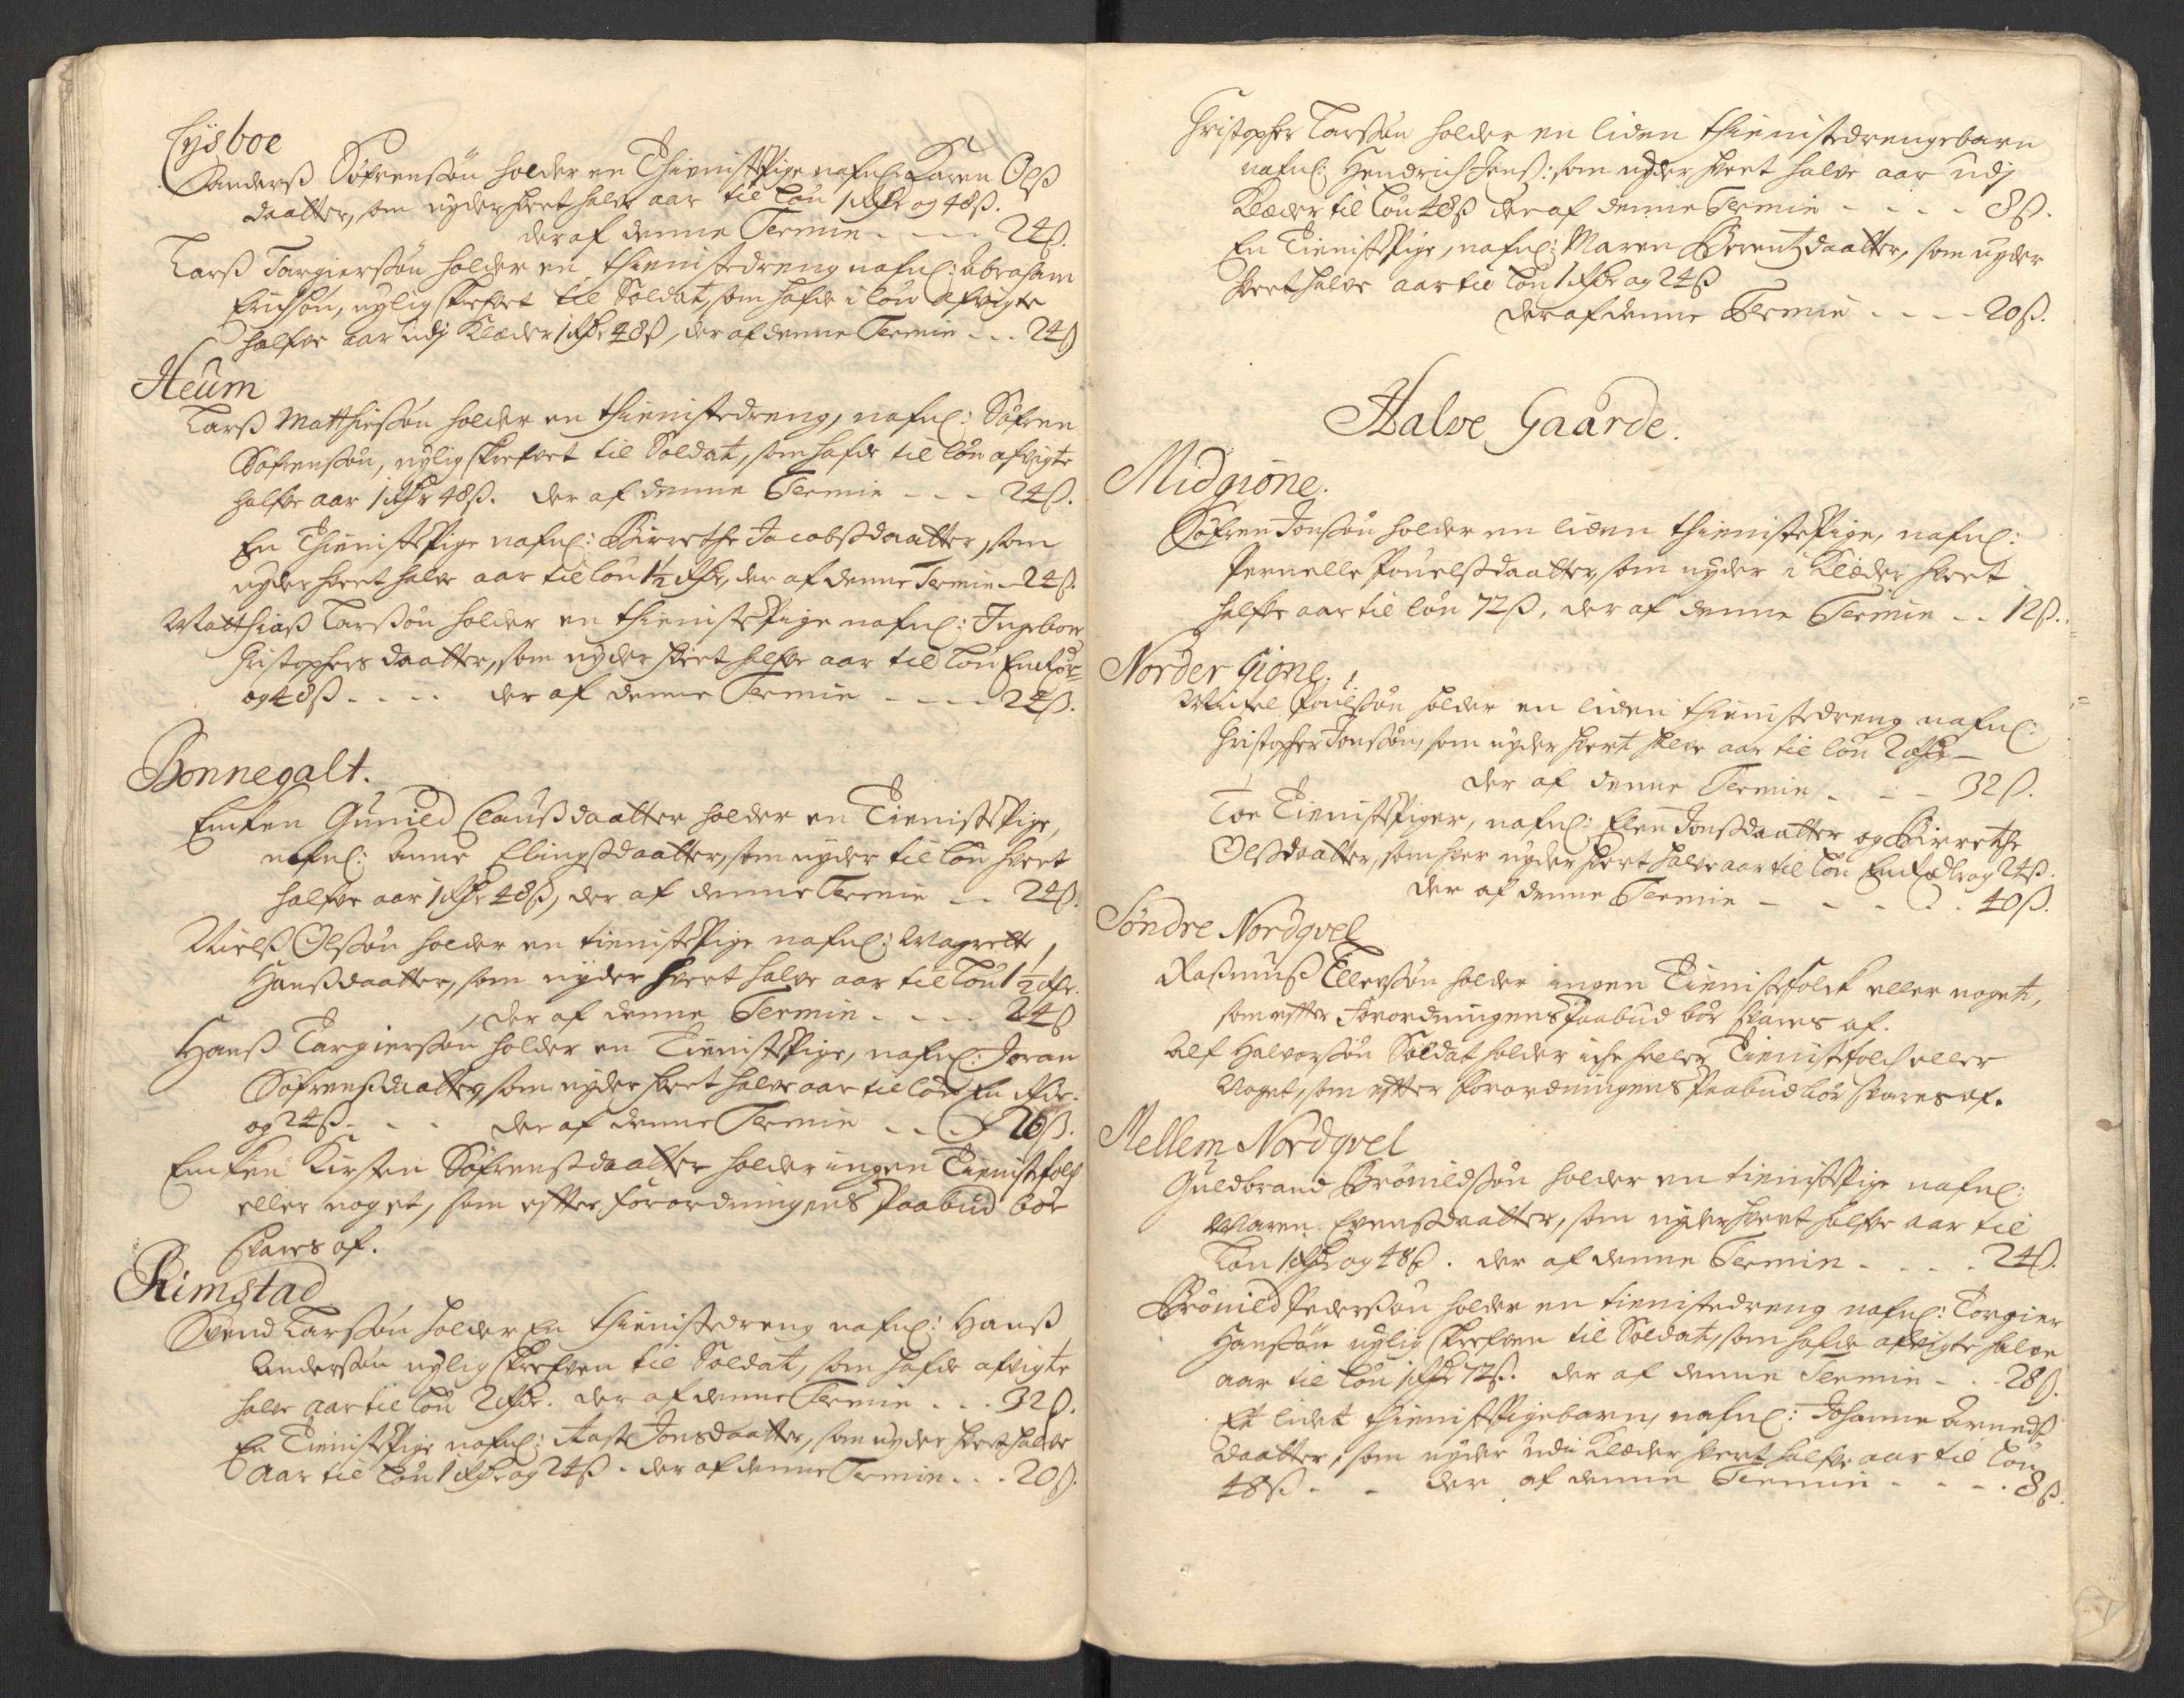 Lÿsboe
Anders Søfrensøn holder en Thienistpige nafnl: Karen Olß
daatter, som nyder hvert halve aar til løn 1 Rdr og 48ß.
der af denne Termin - - - 24ß.
Larß Targiersøn holder en thienistedreng nafnl: Abraham
Erichsøn, nylig skrefvet til Soldat, som hafde i løn afvigte
halfve aar udj Klæder 1 Rdr 48ß, der af denne Termin - - - 24ß
Heum
Larß Matthiesøn holder en thienistedreng, nafnl: Søfren
Søfrensøn, nylig skrefvet til Soldat, som hafde til løn afvigte
halfve aar 1 Rdr 48ß. der af denne Termin - - - 24ß.
En Thieniste Pige nafnl: Birrethe Jacobsdaatter, som
nyder hvert halve aar til løn 1½ Rdr, der af denne Termin - 24ß.
Matthiaß Larßøn holder en thieniste Pige nafnl: Ingebor
Christophersdaatter, som nyder hvert halfve aar til løn En Rdr
og 48ß - - - - der af denne Termin - - - - 24ß.
Bonnegalt.
Encken Gunild Claußdaatter holder en Tieniste Pige,
nafnl: Anne Elingsdaatter, som nyder til løn hvert
halfve aar 1 Rdr 48ß, der af denne Termin - - 24ß.
Nielß Olßøn holder en tieniste Pige nafnl: Magrette
Hanßdaatter, som nyder hvert halve aar til løn 1½ Rdr.
der af denne Termin - - - - 24ß
Hanß Targiersøn holder en Tieniste Pige, nafnl: Joran
Søfrensdaatter, som nyder hvert halve aar til løn En Rdr.
og 24ß - - - der af denne Termin - - - 20ß.
Encken Kirsten Søfrensdaatter holder ingen Tienistefolch
eller noget, som efter forordningens Paabud bør
svares af.
Rimstad
Svend Larßøn holder En thienistedreng nafnl: Hanß
Andersøn nylig skrefven til Soldat, som hafde afvigte
halve aar til løn 2 Rdr. der af denne Termin - - - 32ß.
En Tieniste Pige nafnl: Aaste Jonsdaatter, som nyder hvert halve
Aar til løn 1 Rdr og 24ß - der af denne Termin - - - 20ß.
Christopher Larßøn holder en liden thienistedrengebarn
nafnl: Hendrich Jenß:, som nyder hvert halve aar udj
Klæder til løn 48ß der af denne Termin - - - - 8ß.
En Tieniste Pige, nafnl: Maren Berentzdaatter, som nyder
hvert halve aar til løn 1 Rdr og 24ß
der af denne Termin - - - - 20ß.
Halve Gaarde.
Midgione.
Søfren Jonsøn holder en liden thieniste Pige, nafnl:
Pernelle Pouelßdaatter, som nyder i Klæder hvert
halfve aar til løn 72ß, der af denne Termin - - 12ß.
Norder Gione.
Mickel Poulsøn holder en liden thienistedreng nafnl:
Christopher Jonsøn, som nyder hvert halve aar til løn 2 Rdr -
der af denne Termin - - - 32ß.
Toe Tieniste Piger, nafnl: Elen Jonsdaatter og Birrethe
Olßdaatter, som hver nyder hvert halve aar til løn En Rdr og 24ß.
der af denne Termin - - - - - 40ß.
Søndre Nordqvel
Raßmuß Ellevsøn holder ingen Tienistefolck eller noget,
som efter Forordningens Paabud bør svares af.
Alf Halvorsøn Soldat holder iche heller Tienistefolch eller
Noget, som efter Forordningens Paabud bør svares af.
Mellem Nordqvel
Guldbrand Brønildsøn holder en tieniste Pige nafnl:
Maren Evensdaatter, som nyder hvert halfve aar til
Løn 1 Rdr og 48ß. der af denne Termin - - - - 24ß.
Brønild Pedersøn holder en tienistedreng nafnl: Torgier
Hanßøn nylig skrefven til Soldat, som hafde afvigte halve
aar til løn 1 Rdr 72ß. der af denne Termin - - 28ß.
Et lidet thieniste Pigebarn, nafnl: Johanne Arneds
daatter, som nyder udi Klæder hvert halfve aar til løn
48ß - - der af denne Termin - - - - 8ß.